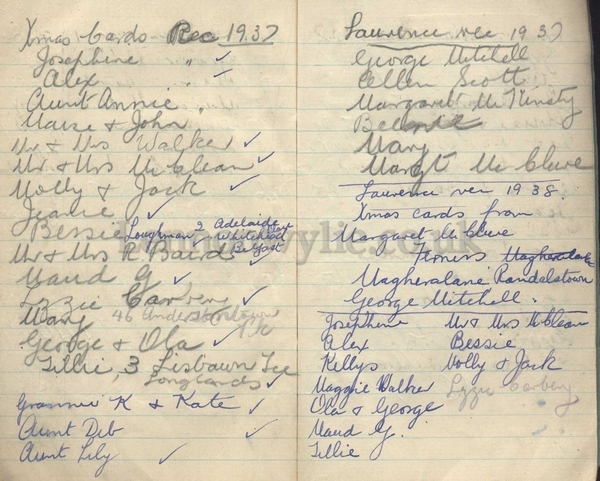 Xmas Cards Rec 1937
Josephine " ✓
Alex " ✓
Aunt Annie "
Maise & John
Mr & Mrs Walker ✓
Mr & Mrs McClean ✓
Molly & Jack ✓
Jeanie ✓
Bessie Loughman 2 Adelaide
Whitehead
Belfast
Mr & Mrs R Baird
Maud G ✓
Lizzie Carbery ✓
Mary 46
George & Ola ✓
Tillie 3 Lisbawn Tce
Longlands ✓
Grannie K & Kate ✓
Aunt Deb ✓
Aunt Lily ✓
Laurence rec 1937
George Mitchell
Ellen Scott
Margaret McKinsty
Mary
Margt McClure
Laurence rec 1938.
Xmas cards from
Margaret McClure
Magheralane
Magheralane Randalstown
George Mitchell.
Josephine Mr & Mrs McClean
Alex Bessie
Kellys Molly & Jack
Maggie Walker Lizzie Carbery
Ola & George
Maud G.
Tillie